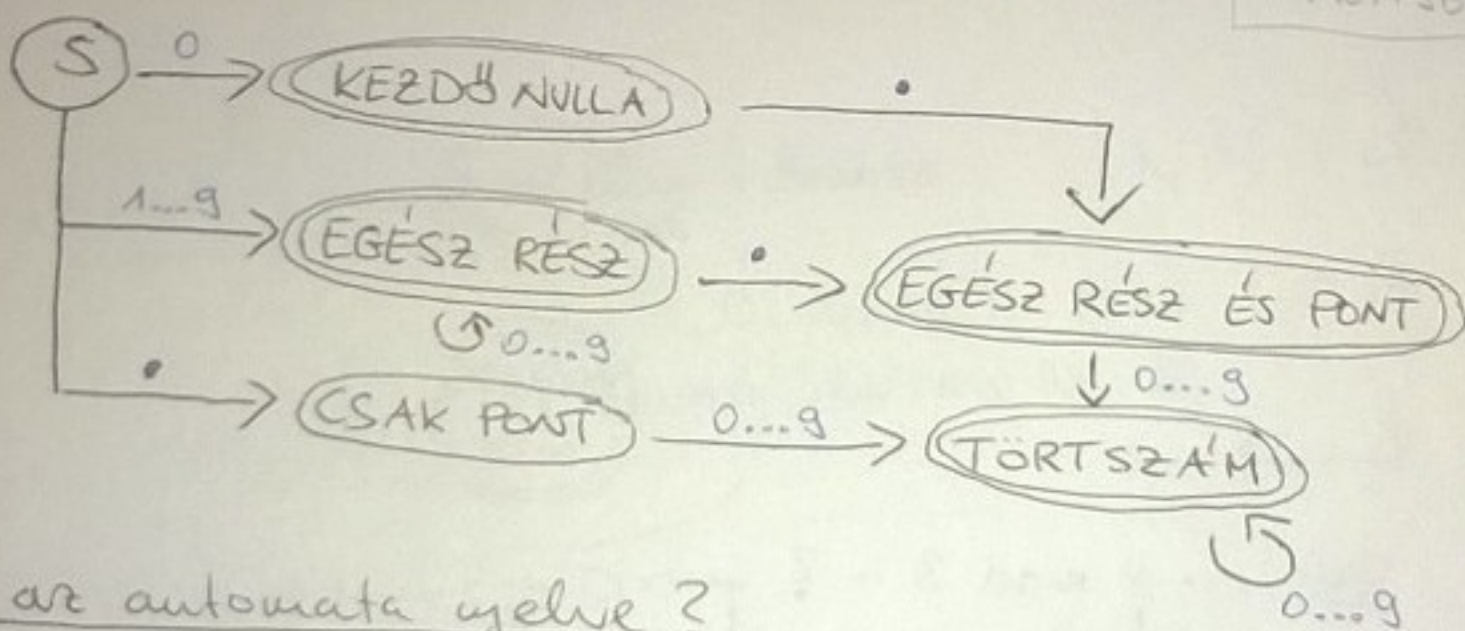 S 0 KEZDŐ NULLA .
1...9 EGÉSZ RÉSZ . EGÉSZ RÉSZ ÉS PONT
0...9
. CSAK PONT 0...9 TÖRTSZÁM
0...9
0...9
az automata nyelve ?